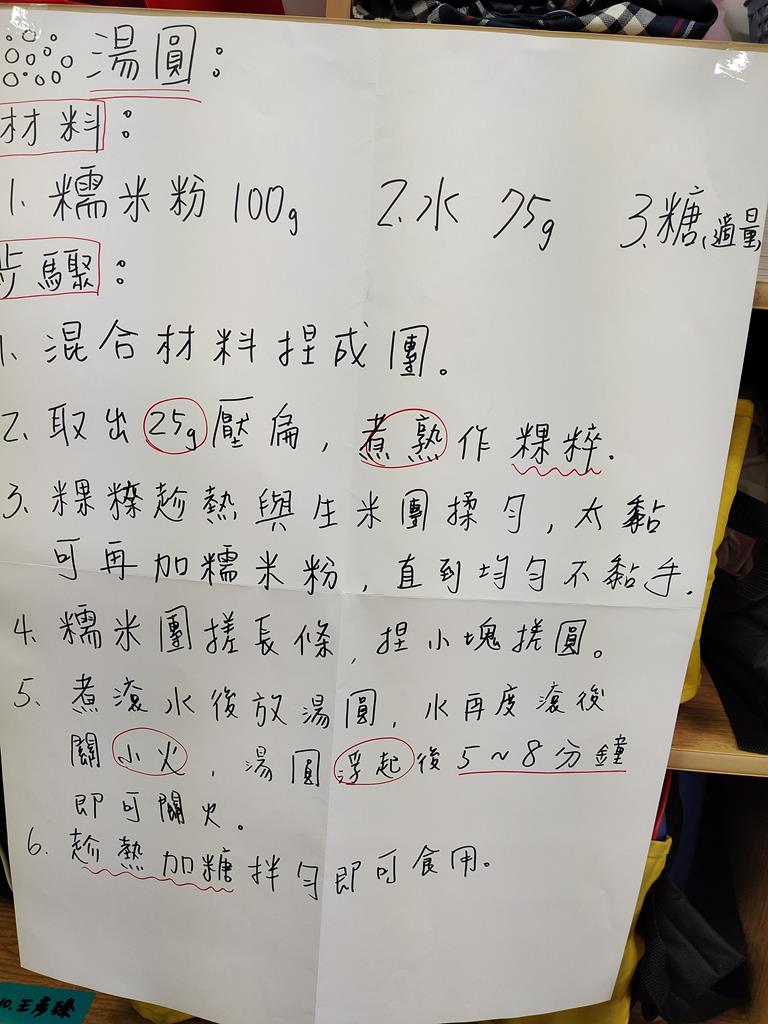 湯圓：
材料：
1. 糯米粉 100g 2. 水 75g 3. 糖,適量
步驟：
1. 混合材料捏成團。
2. 取出25g壓扁，煮熟作粿粹.
3. 粿糅趁熱與生米團揉勻，太黏
可再加糯米粉，直到均勻不黏手.
4. 糯米團搓長條，捏小塊搓圓。
5. 煮滾水後放湯圓，水再度滾後
關小火，湯圓浮起後5~8分鐘
即可關火。
6. 趁熱加糖拌勻即可食用。
10. 王彥臻